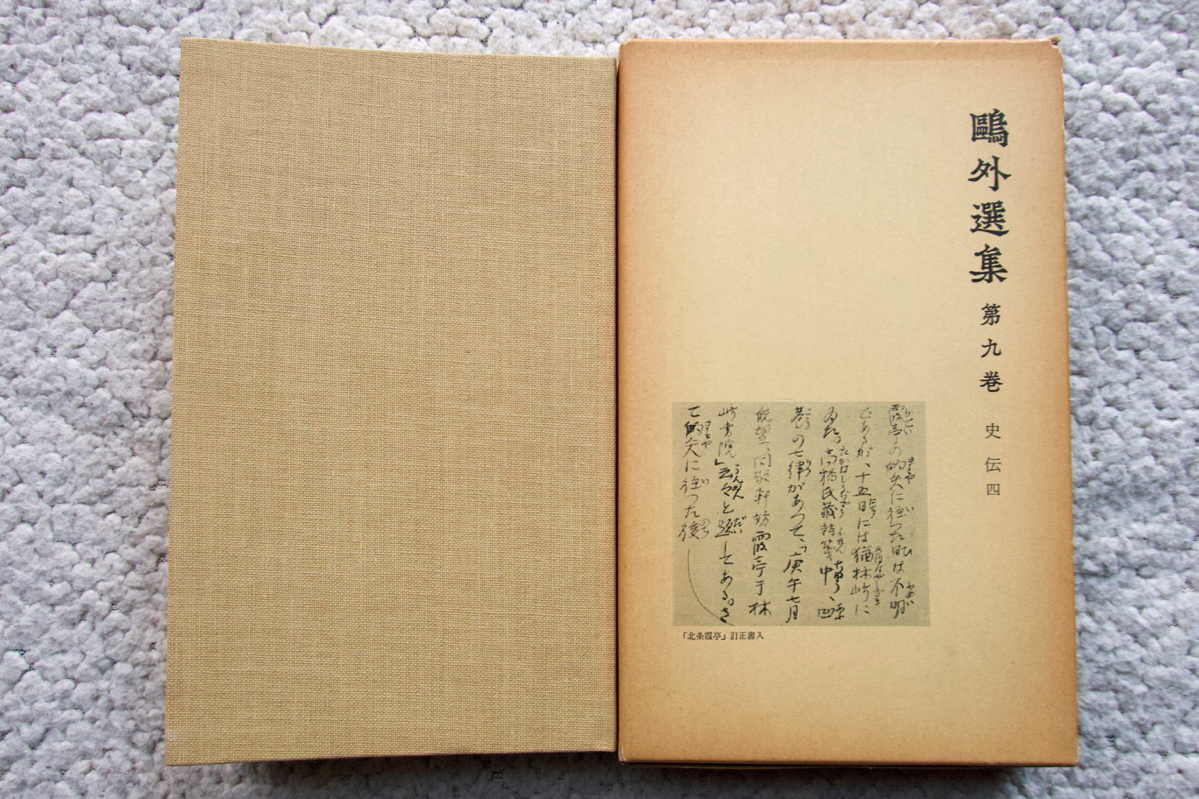 鷗外選集 第九巻 史伝四
霞亭の的矢に往つた時は不明
であるが、十五日には猶林崎に
ゐた。高橋氏蔵詩箋中、凹
巷の七律があつて、「庚午七月
既望、同敬軒訪霞亭于林
崎書院」云々と題してある。さ
て的矢に往つた後
「北条霞亭」訂正書入